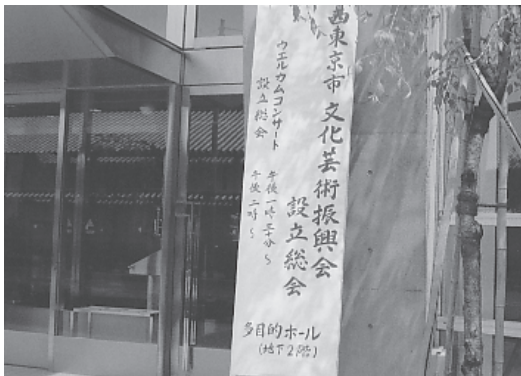 西東京市 文化芸術振興会
設立総会
ウエルカムコンサート 午後一時三十分〜
設立総会 午後二時〜
多目的ホール
(地下2階)